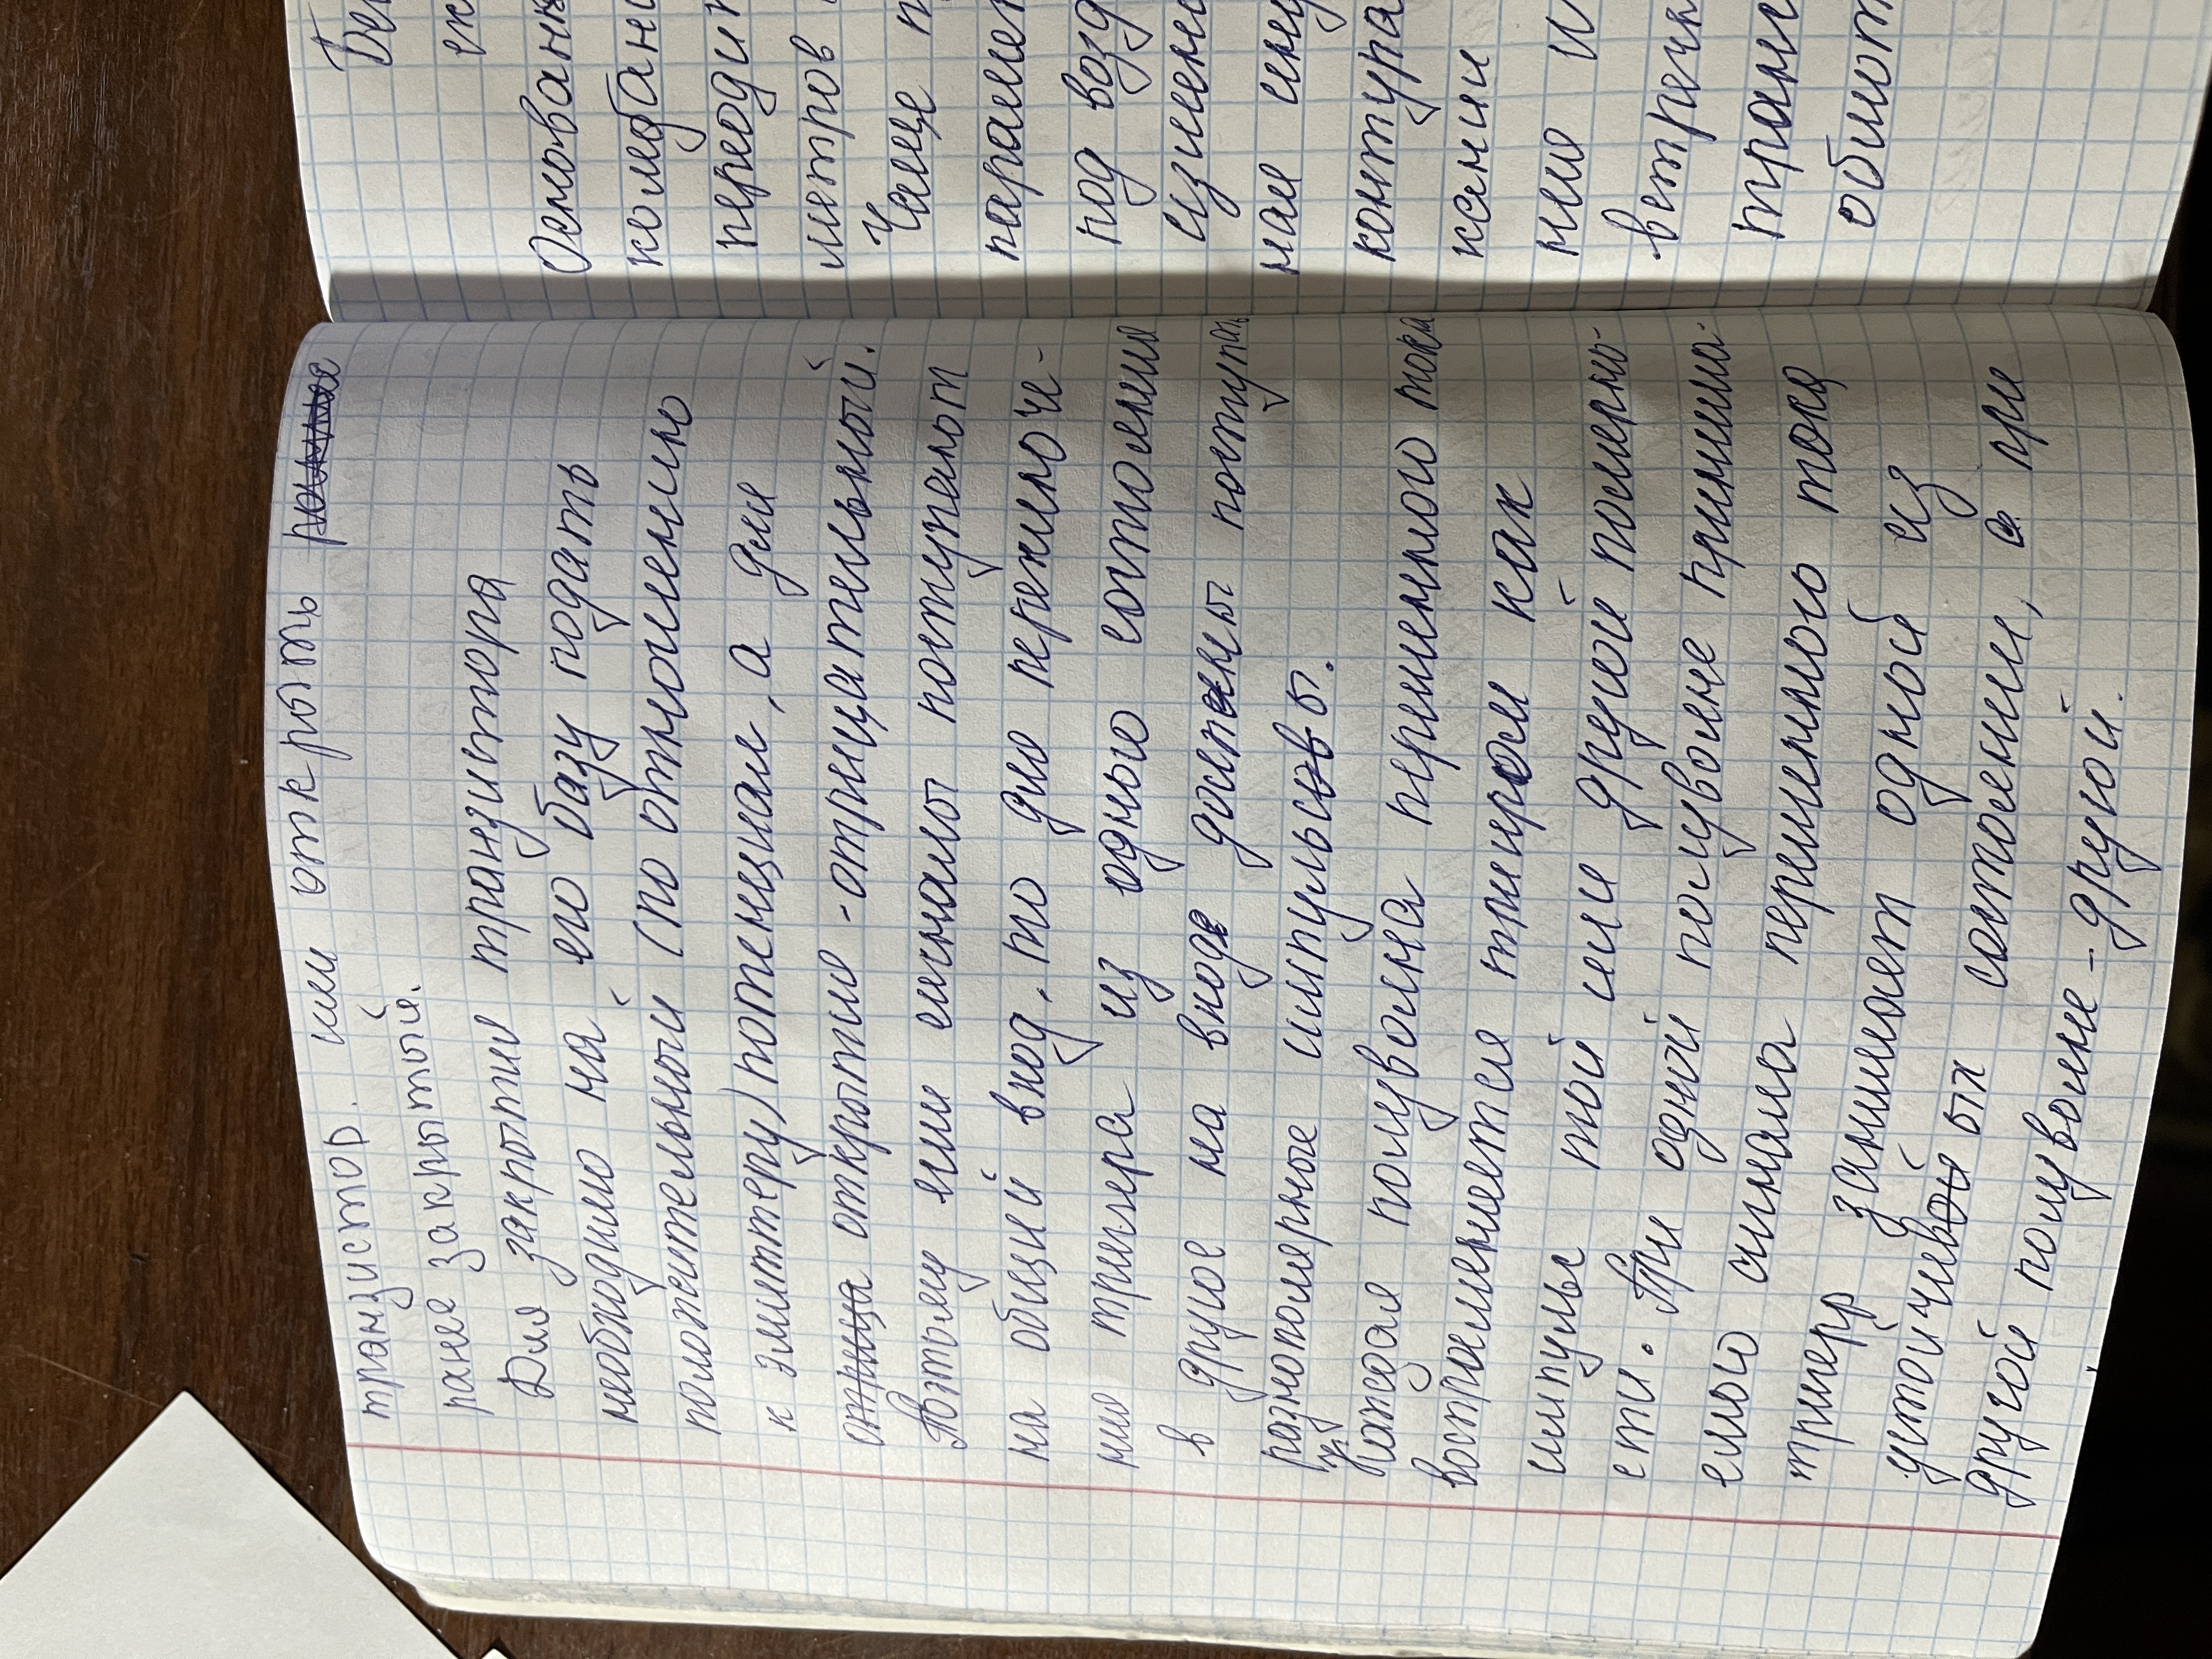 транзистор. или открыть
ранее закрытый.
Для закрытие транзистора
необходимо на его базу подать
положительный (по отношению
к эмиттеру) потенциал, а для
открытие - отрицательный.
Поэтому если сигналы поступают
на общий вход. то для переключе-
ние триггера из одного состояния
в другое на входе должны поступать
разнополярные импульсы.
Каждая полуволна переменного тока
воспринимается триггером как
импульс той или другой полярно-
сти. При одной полуволне принима-
емого сигнала переменного тока
тригерр занимает одной из
устойчивых состоянии, а при
другой полуволне - другой.
Бес
ск
Основан
колебан
периоди
метров
Чаще п
параме
под возд
изменен
ная инд
контура
ксани
ние и
встречн
транс
обмот